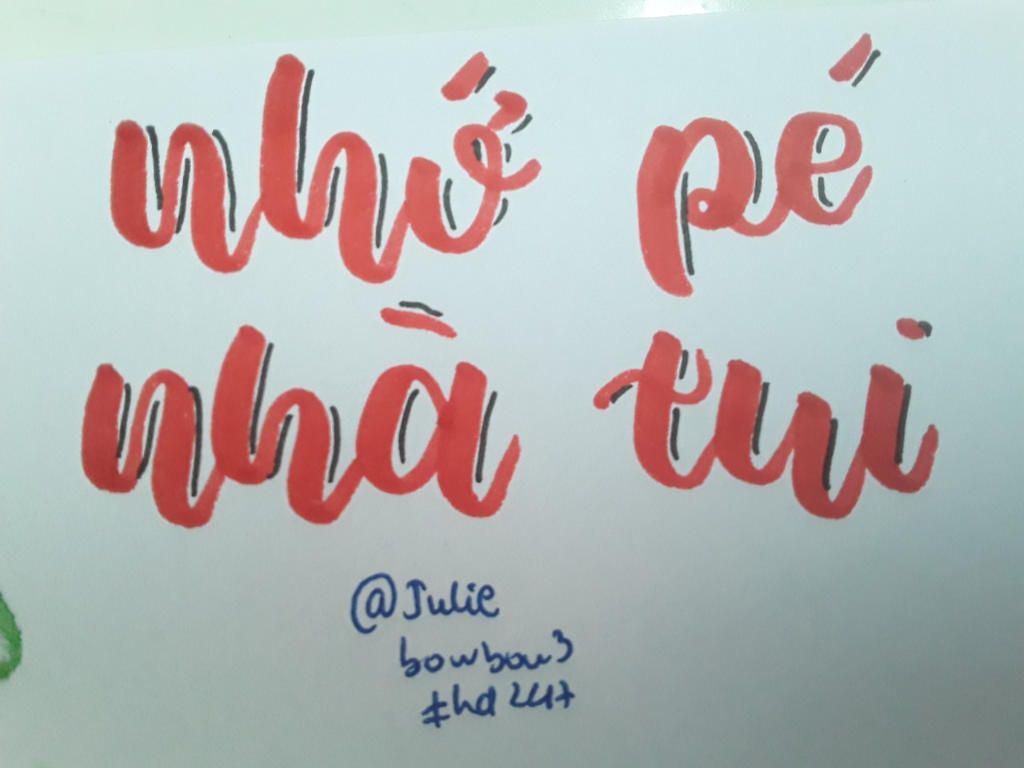 nhớ pé
nhà tui
@Julie
bowbow3
#hd247